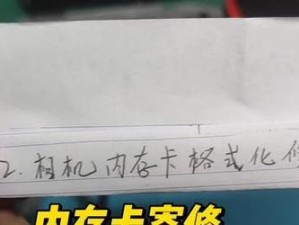 2.相机内存卡格式化
内存卡寄修